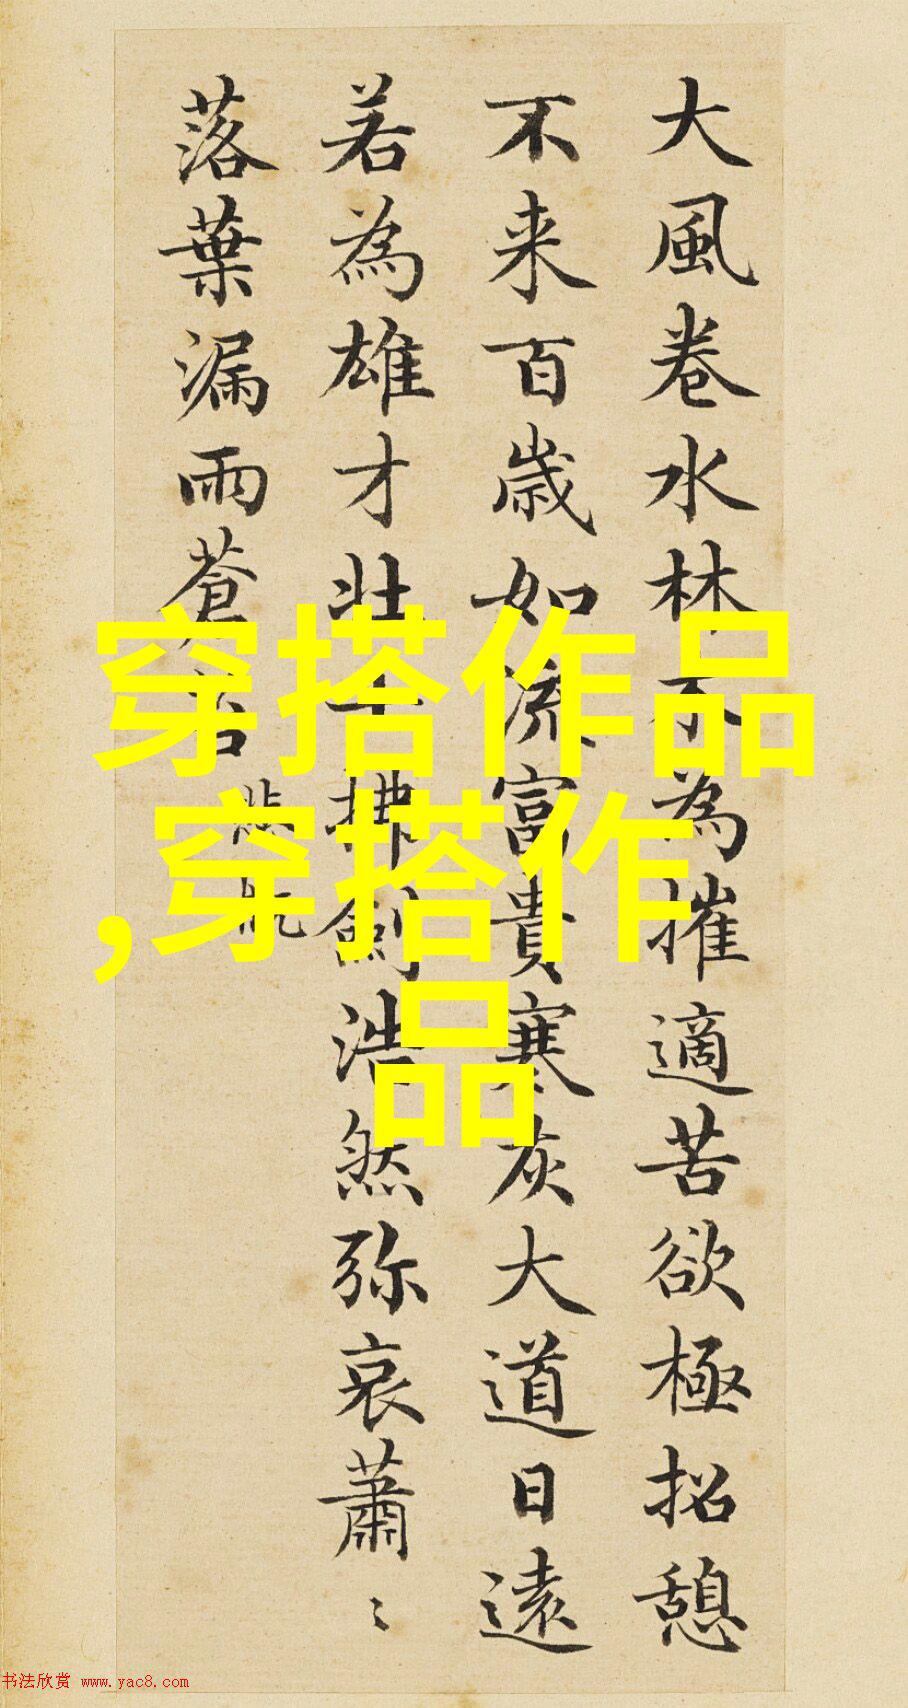 大風卷水林木為摧適苦欲極招憩
不来百歲如流富貴寒灰大道日遠
若為雄才壯士拂劍浩然弥哀蕭〻
落葉漏雨蒼苔
悲慨
穿搭作品
,穿搭作
品
书法欣赏 www.yac8.com